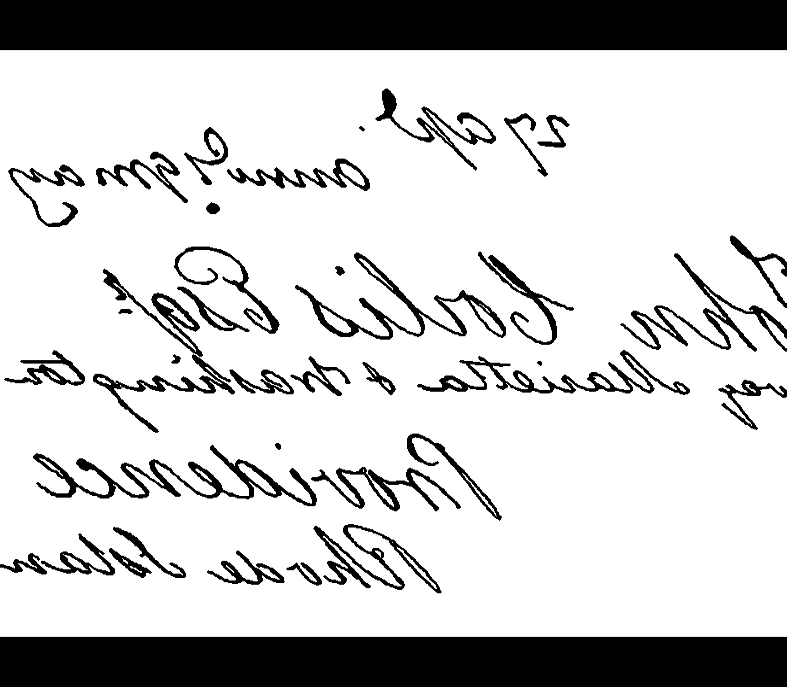 27 apl.
answd. 9 may
John Corlis Esqr.
vey Marietta & Washington
Providence
Rhode Islan